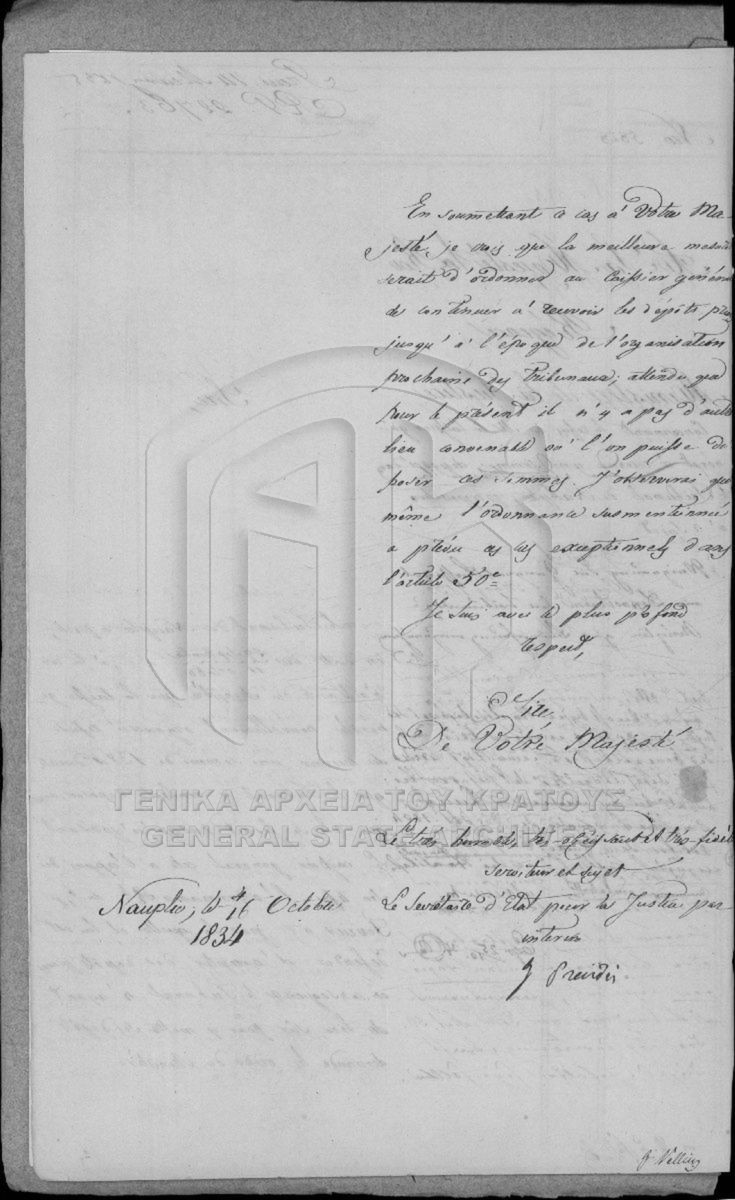 En soumettant ce cas à Votre Ma-
jesté, je crois que la meilleure mesure
serait d'ordonner au Caissier général
de continuer à recevoir les dépôts
jusqu'à l'époque de l'organisation
prochaine des Tribunaux; attendu que
pour le présent il n'y a pas d'autre
lieu convenable où l'on puisse dé-
poser ces sommes. J'observerai que
même l'ordonnance susmentionnée
a prévu ces cas exceptionnels dans
l'article 50e
Je suis avec le plus profond
respect,
Sire
De Votre Majesté
Le très humble, très obéissant et très fidèle
serviteur et sujet
Le Secrétaire d'Etat pour la Justice par
interim
Nauplie, le 4/16 Octobre
1834
ΓΕΝΙΚΑ ΑΡΧΕΙΑ ΤΟΥ ΚΡΑΤΟΥΣ
GENERAL STATE ARCHIVES